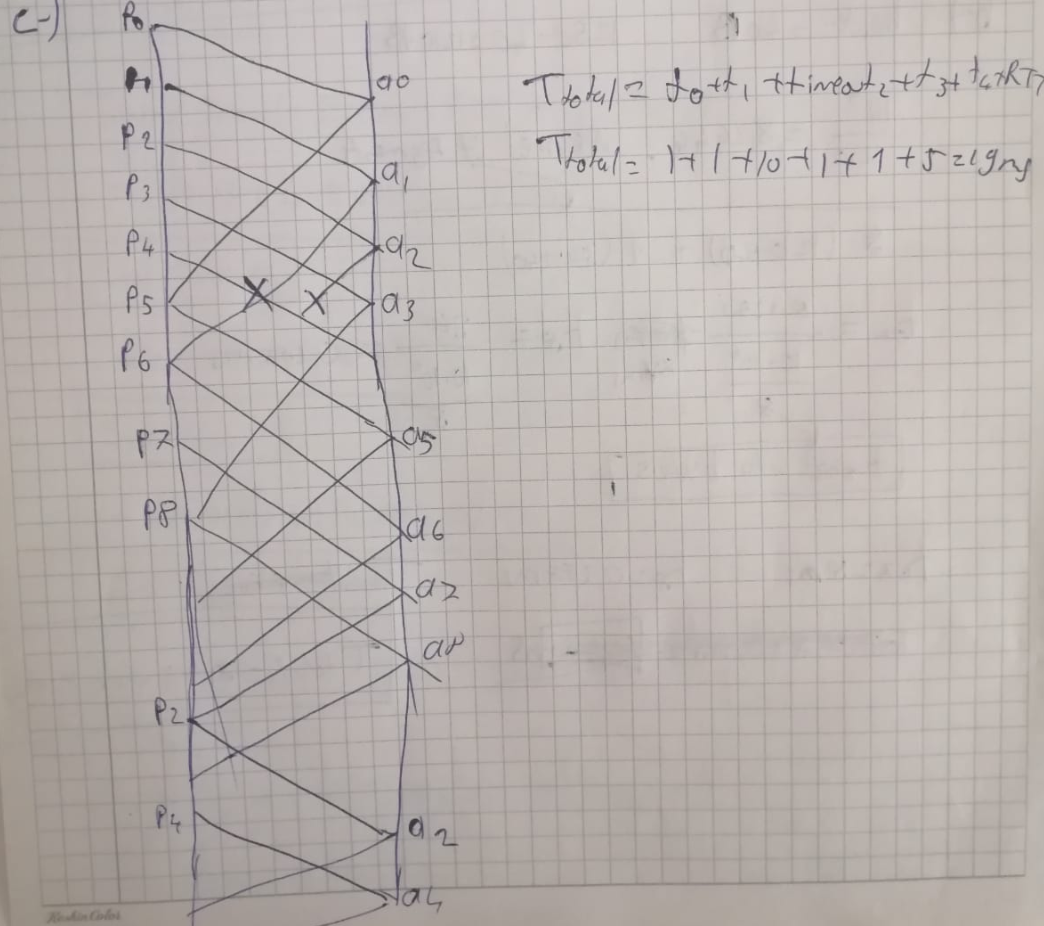 C-)
P0
P1
P2
P3
P4
P5
P6
P7
P8
P2
P4
a0
a1
a2
a3
a5
a6
a7
a8
a2
a4
X X
Ttotal = t0 + t1 + timeout2 + t3 + t4 + RTT
Ttotal = 1 + 1 + 10 + 1 + 1 + 5 = 19 ms
KeskinColor